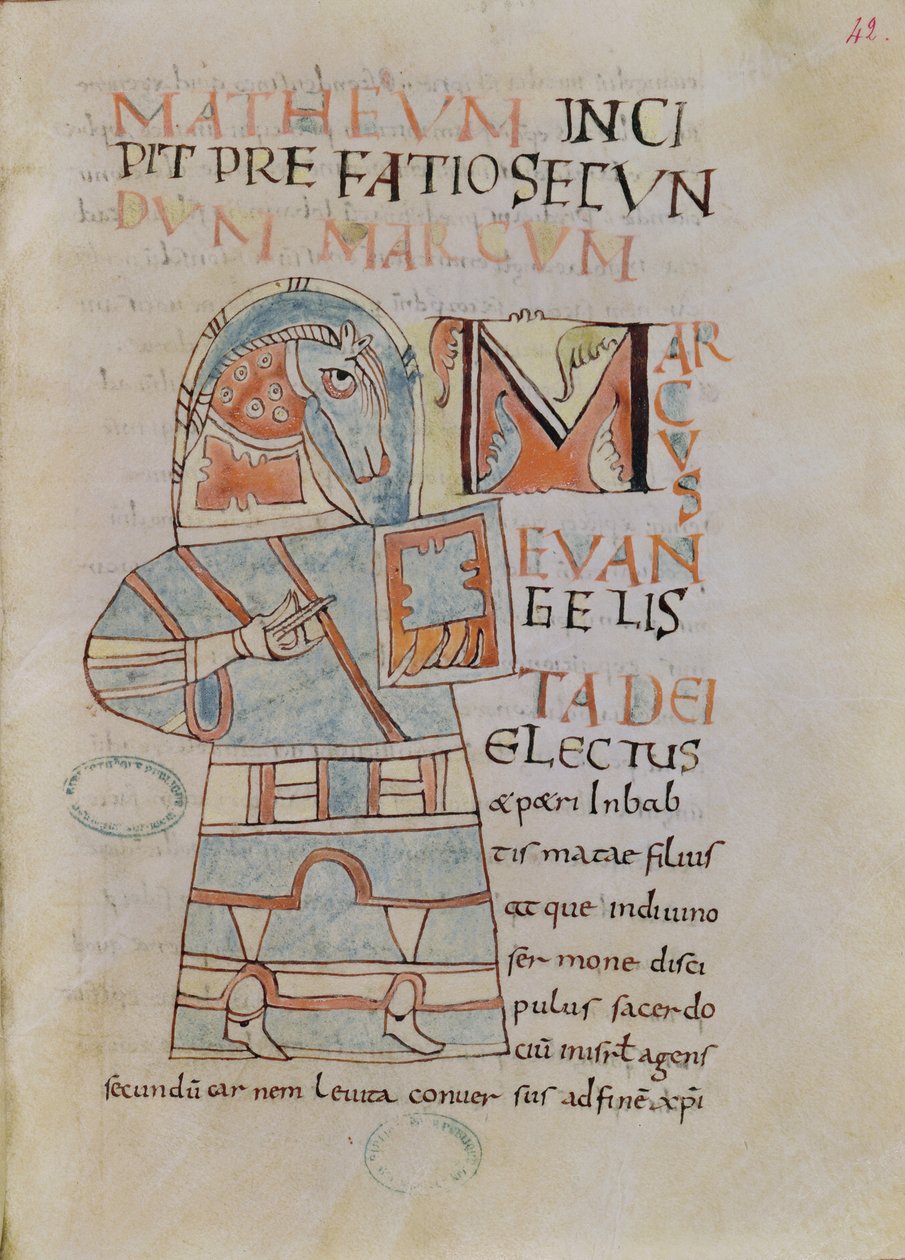 42.
MATHEVM INCI
PIT PREFATIO SECVN
DVM MARCVM
MARCVS
EVAN
GELIS
TA DEI
ELECTUS
& p&ri Inbab
tis matae filius
atque indiuino
sermone disci
pulus sacerdo
ciū inisrł agens
secundū carnem leuita conuersus adfinē xp̄i